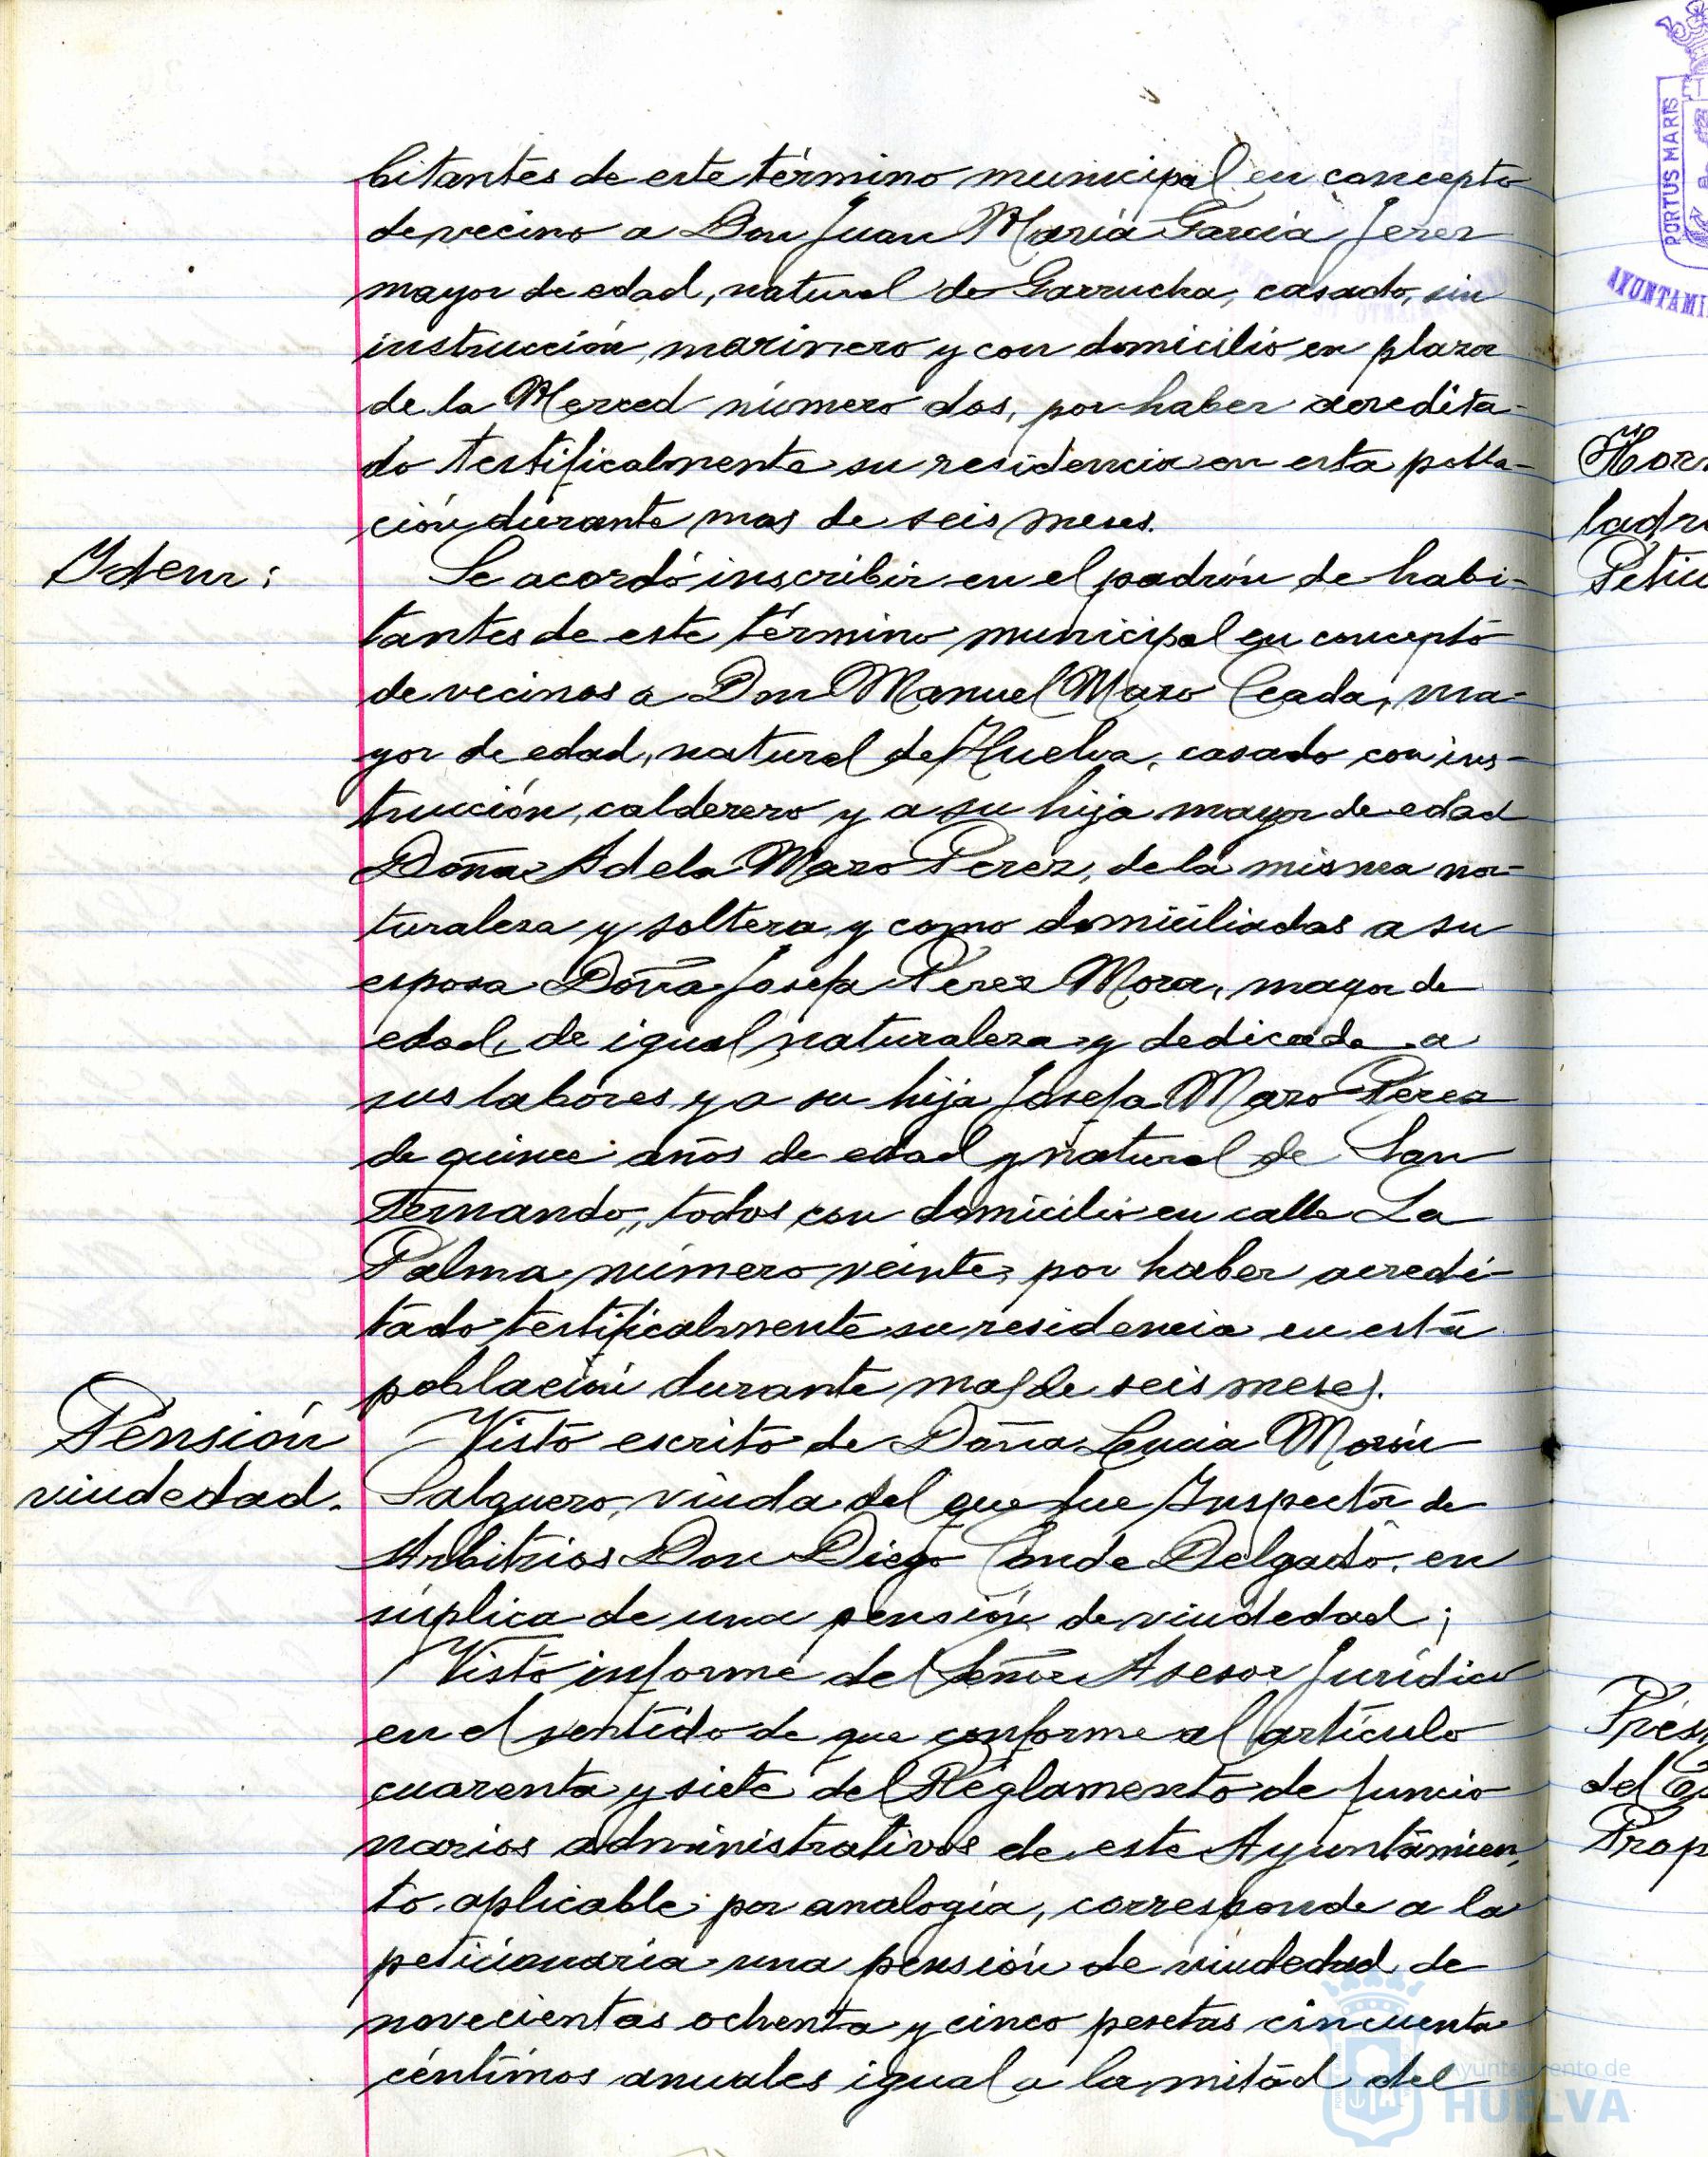 bitantes de este término municipal en concepto
de vecino a Don Juan María García Jerez
mayor de edad, natural de Garrucha, casado, sin
instrucción, marinero y con domicilio en plaza
de la Merced número dos, por haber acredita-
do testificalmente su residencia en esta pobla-
ción durante mas de seis meses.
Idem:
Se acordó inscribir en el padrón de habi-
tantes de este término municipal en concepto
de vecinos a Don Manuel Mazo Ceada, ma-
yor de edad, natural de Huelva, casado con ins-
trucción, calderero y a su hija mayor de edad
Doña Adela Mazo Perez, de la misma na-
turaleza y soltera y como domiciliadas a su
esposa Doña Josefa Perez Mora, mayor de
edad, de igual naturaleza y dedicada a
sus labores y a su hija Josefa Mazo Perez
de quince años de edad y natural de San
Fernando, todos con domicilio en calle La
Palma número veinte, por haber acredi-
tado testificalmente su residencia en esta
población durante mas de seis meses.
Pensión
viudedad.
Visto escrito de Doña Lucia Morón
Salguero, viuda del que fue Inspector de
Arbitrios Don Diego Conde Delgado, en
súplica de una pensión de viudedad;
Visto informe del Señor Asesor Jurídico
en el sentido de que conforme al artículo
cuarenta y siete del Reglamento de funcio
narios administrativos de este Ayuntamien-
to, aplicable por analogía, corresponde a la
peticionaria una pensión de viudedad de
novecientas ochenta y cinco pesetas cincuenta
céntimos anuales igual a la mitad del
PORTUS MARIS
AYUNTAMI
ladr
del
Prop
Ayuntamiento de
HUELVA